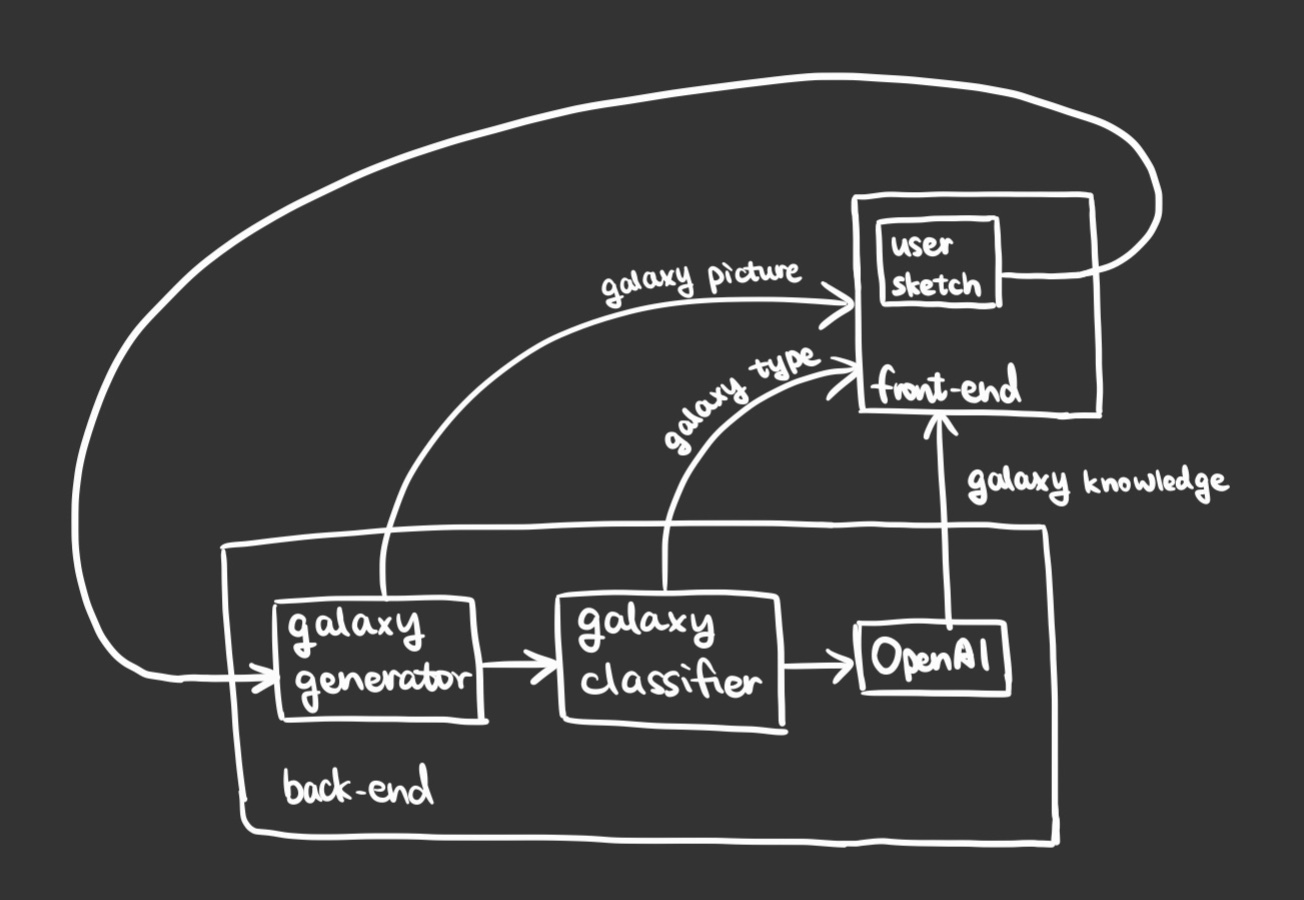 user
sketch
galaxy picture
galaxy type
front-end
galaxy knowledge
galaxy
generator
galaxy
classifier
OpenAI
back-end